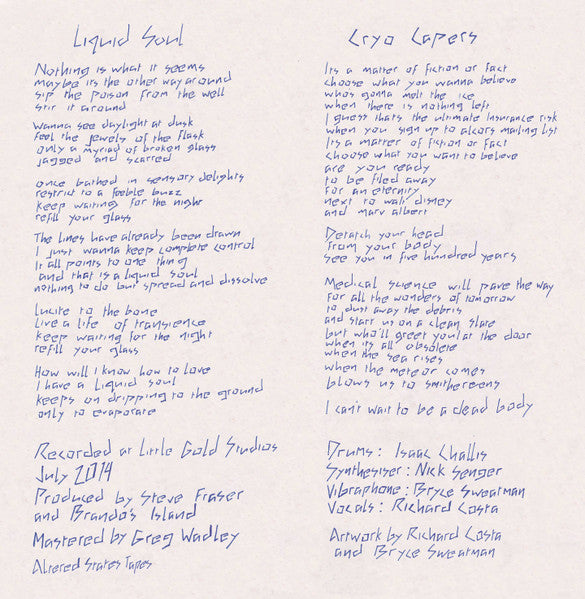 Liquid Soul
Nothing is what it seems
maybe its the other way around
sip the poison from the well
stir it around
wanna see daylight at dusk
feel the jewels of the flask
only a myriad of broken glass
jagged and scarred
once bathed in sensory delights
restrict to a feeble buzz
keep waiting for the night
refill your glass
The lines have already been drawn
I just wanna keep complete control
It all points to one thing
and that is a liquid soul
nothing to do but spread and dissolve
Lucite to the bone
Live a life of transience
keep waiting for the night
refill your glass
How will I know how to love
I have a Liquid soul
keeps on dripping to the ground
only to evaporate
Recorded at Little Gold Studios
July 2014
Produced by Steve Fraser
and Brando's Island
Mastered by Greg Wadley
Altered States Tapes
Cryo Capers
Its a matter of fiction or fact
choose what you wanna believe
whos gonna melt the ice
when there is nothing left
I guess thats the ultimate insurance risk
when you sign up to alcors mailing list
Its a matter of fiction or fact
choose what you want to believe
are you ready
to be filed away
for an eternity
next to walt disney
and marv albert
Detatch your head
from your body
see you in five hundred years
Medical science will pave the way
for all the wonders of tomorrow
to dust away the debris
and start us on a clean slate
but who'll greet you at the door
when its all obsolete
when the sea rises
when the meteor comes
blows us to smithereens
I can't wait to be a dead body
Drums: Isaac Challis
Synthesiser: Nick Senger
Vibraphone: Bryce Sweatman
Vocals: Richard Costa
Artwork by Richard Costa
and Bryce Sweatman